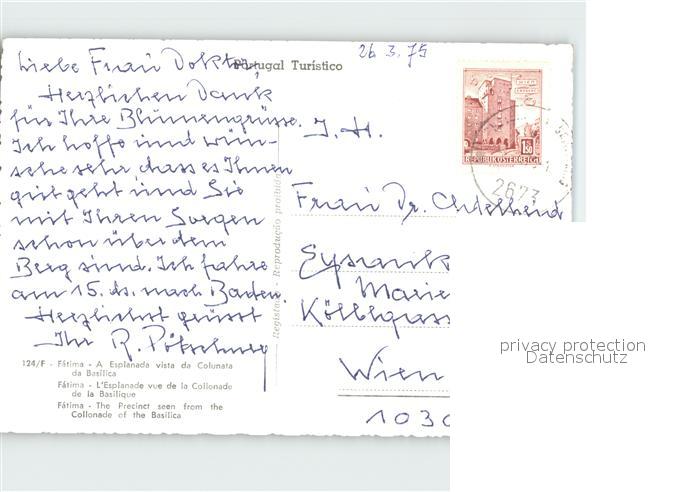 26. 3. 75
Portugal Turístico
Liebe Frau Doktor,
Herzlichen Dank
für Ihre Blumengrüsse.
Ich hoffe und wün-
sche sehr, dass es Ihnen
gut geht und Sie
mit Ihren Sorgen
schon über dem
Berg sind. Ich fahre
am 15. ds. nach Baden.
Herzlichst grüsst
Ihr R.
124/F - Fátima - A Esplanada vista da Colunata
da Basílica
Fátima - L'Esplanade vue de la Collonade
de la Basilique
Fátima - The Precinct seen from the
Collonade of the Basilica
Reprodução proibida
I. H.
Frau Dr.
Marie
Wien
1030
WIEN
1.50
REPUBLIK ÖSTERREICH
2673
privacy protection
Datenschutz